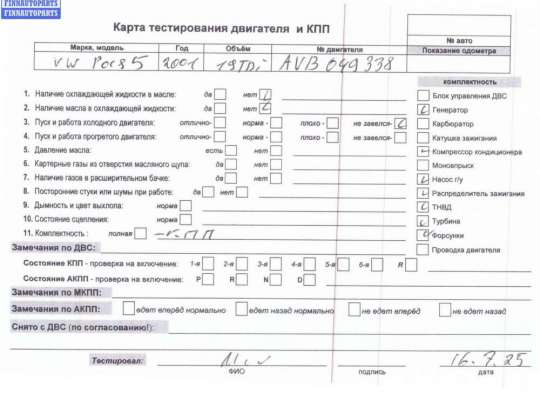 FINNAUTOPARTS
FINNAUTOPARTS
Карта тестирования двигателя и КПП
№ авто
Марка, модель Год Объём № двигателя Показание одометра
VW 2001 1.9TDi AVB 049 338
комплектность
1. Наличие охлаждающей жидкости в масле: да нет
Блок управления ДВС
2. Наличие масла в охлаждающей жидкости: да нет
Генератор
3. Пуск и работа холодного двигателя: отлично- норма - плохо - не завелся-
Карбюратор
4. Пуск и работа прогретого двигателя: отлично- норма - плохо - не завелся-
Катушка зажигания
5. Давление масла: есть нет
Компрессор кондиционера
6. Картерные газы из отверстия масляного щупа: да нет
Моновпрыск
7. Наличие газов в расширительном бачке: да нет
Насос г/у
8. Посторонние стуки или шумы при работе: да нет
Распределитель зажигания
9. Дымность и цвет выхлопа: норма
ТНВД
10. Состояние сцепления: норма
Турбина
11. Комплектность : полная
Форсунки
Замечания по ДВС:
Проводка двигателя
Состояние КПП - проверка на включение: 1-я 2-я 3-я 4-я 5-я 6-я R
Состояние АКПП - проверка на включение: P R N D
Замечания по МКПП:
Замечания по АКПП: едет вперёд нормально едет назад нормально не едет вперёд не едет назад
Снято с ДВС (по согласованию!):
Тестировал: 16.7.25
ФИО подпись дата